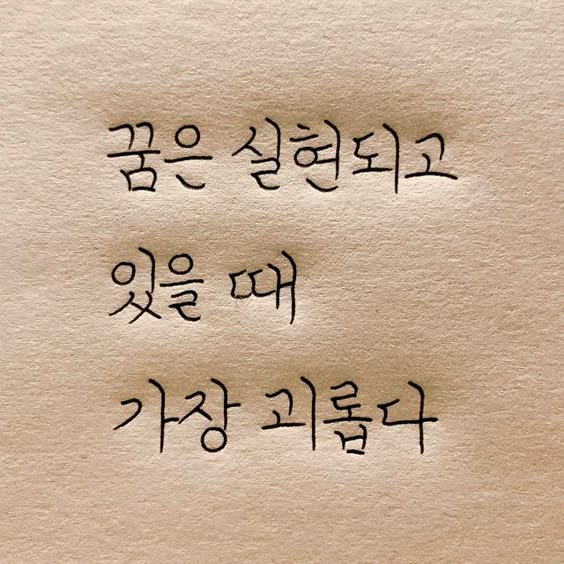 꿈은 실현되고
있을 때
가장 괴롭다